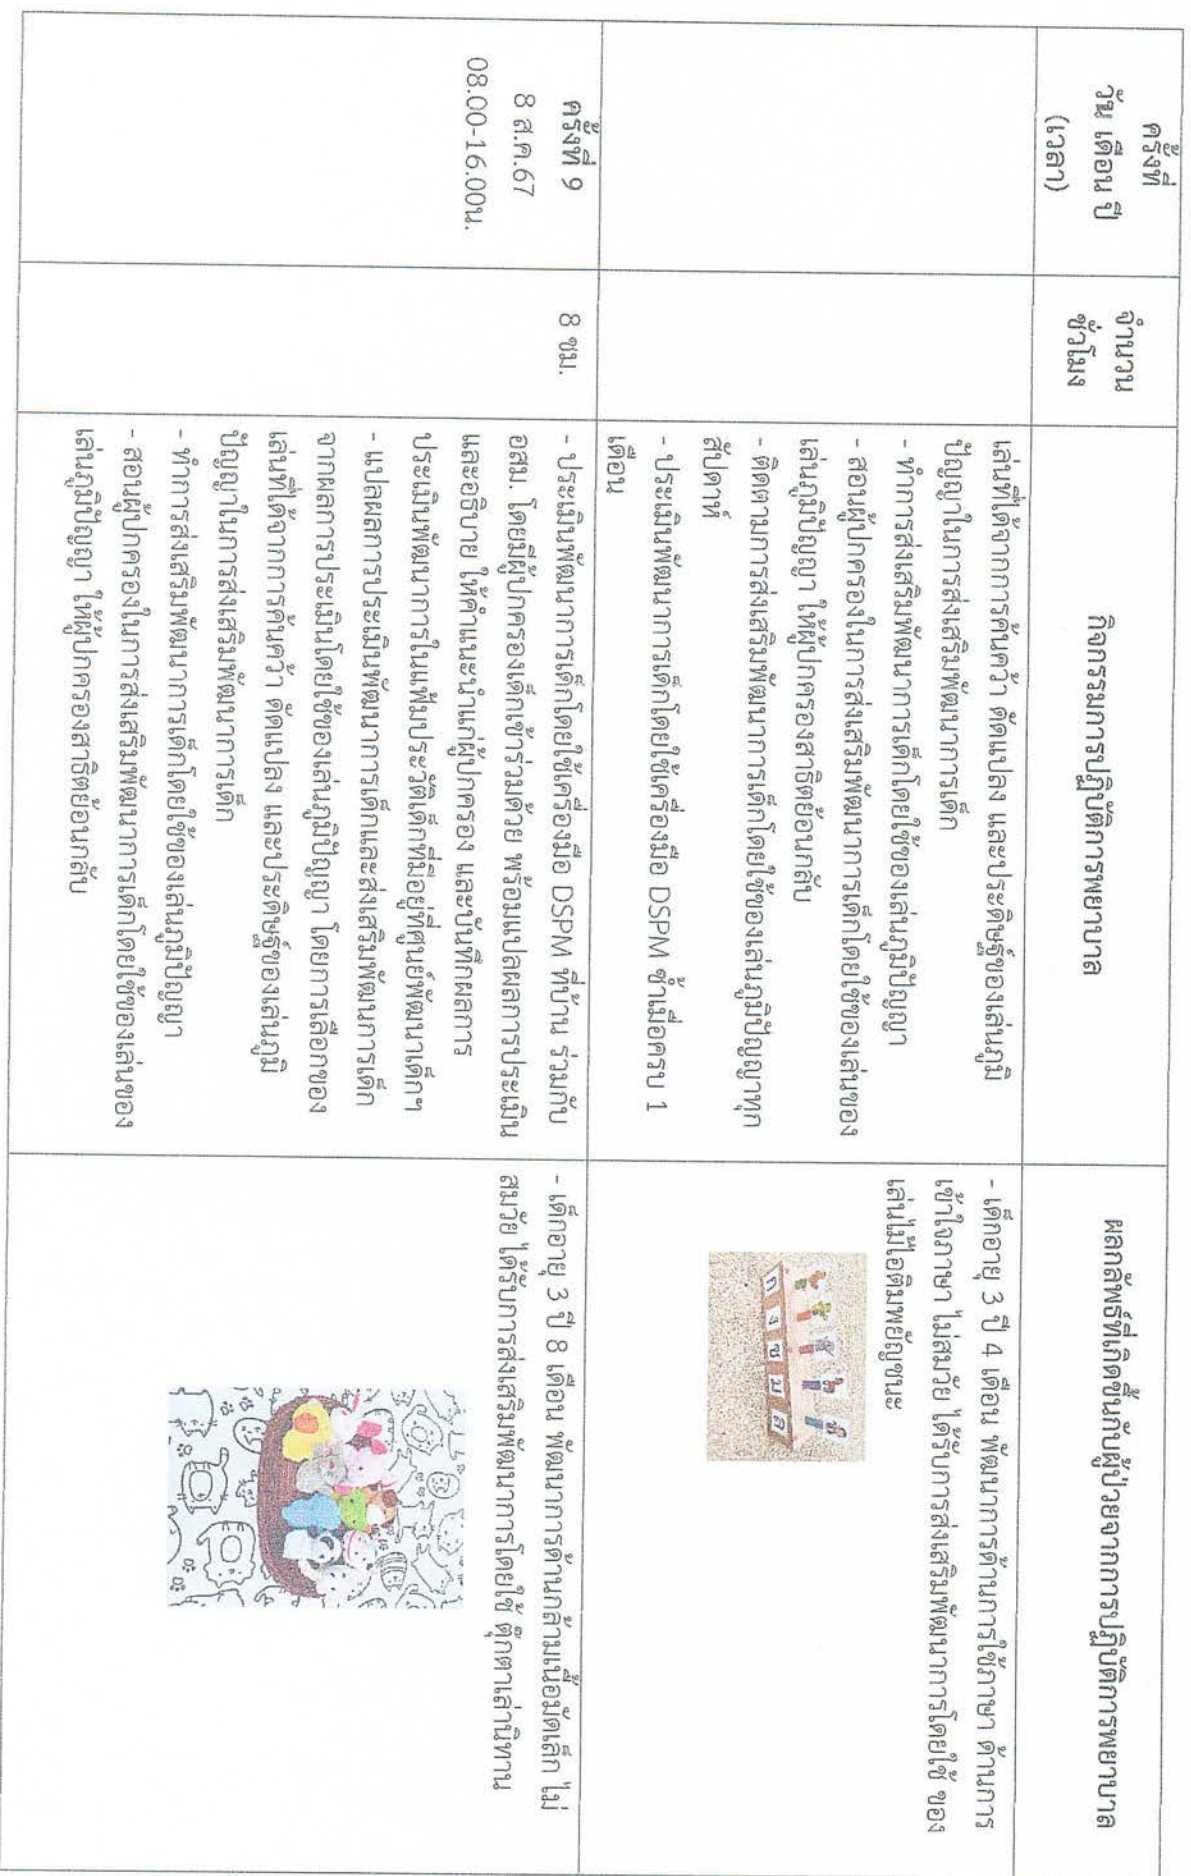 ครั้งที่
วัน เดือน ปี
(เวลา)
จำนวน
ชั่วโมง
กิจกรรมการปฏิบัติการพยาบาล
ผลกลัพธ์ที่เกิดขึ้นกับผู้ป่วยจากการปฏิบัติการพยาบาล
เล่นที่ได้จากการค้นคว้า ดัดแปลง และประดิษฐ์ของเล่นภูมิ
ปัญญาในการส่งเสริมพัฒนาการเด็ก
- ทำการส่งเสริมพัฒนาการเด็กโดยใช้ของเล่นภูมิปัญญา
- สอนผู้ปกครองในการส่งเสริมพัฒนาการเด็กโดยใช้ของเล่นของ
เล่นภูมิปัญญา ให้ผู้ปกครองสาธิตย้อนกลับ
- ติดตามการส่งเสริมพัฒนาการเด็กโดยใช้ของเล่นภูมิปัญญาทุก
สัปดาห์
- ประเมินพัฒนาการเด็กโดยใช้เครื่องมือ DSPM ซ้ำเมื่อครบ 1
เดือน
- เด็กอายุ 3 ปี 4 เดือน พัฒนาการด้านการใช้ภาษา ด้านการ
เข้าใจภาษา ไม่สมวัย ได้รับการส่งเสริมพัฒนาการโดยใช้ ของ
เล่นไม้ไอติมพยัญชนะ
ก ง ช ม ล
ครั้งที่ 9
8 ส.ค.67
08.00-16.00น.
8 ชม.
- ประเมินพัฒนาการเด็กโดยใช้เครื่องมือ DSPM ที่บ้าน ร่วมกับ
อสม. โดยมีผู้ปกครองเด็กเข้าร่วมด้วย พร้อมแปลผลการประเมิน
และอธิบาย ให้คำแนะนำแก่ผู้ปกครอง และบันทึกผลการ
ประเมินพัฒนาการในแฟ้มประวัติเด็กที่มีอยู่ที่ศูนย์พัฒนาเด็กฯ
- แปลผลการประเมินพัฒนาการเด็กและส่งเสริมพัฒนการเด็ก
จากผลการประเมินโดยใช้ของเล่นภูมิปัญญา โดยการเลือกของ
เล่นที่ได้จากการค้นคว้า ดัดแปลง และประดิษฐ์ของเล่นภูมิ
ปัญญาในการส่งเสริมพัฒนาการเด็ก
- ทำการส่งเสริมพัฒนาการเด็กโดยใช้ของเล่นภูมิปัญญา
- สอนผู้ปกครองในการส่งเสริมพัฒนาการเด็กโดยใช้ของเล่นของ
เล่นภูมิปัญญา ให้ผู้ปกครองสาธิตย้อนกลับ
- เด็กอายุ 3 ปี 8 เดือน พัฒนาการด้านกล้ามเนื้อมัดเล็ก ไม่
สมวัย ได้รับการส่งเสริมพัฒนาการโดยใช้ ตุ๊กตาเล่านิทาน